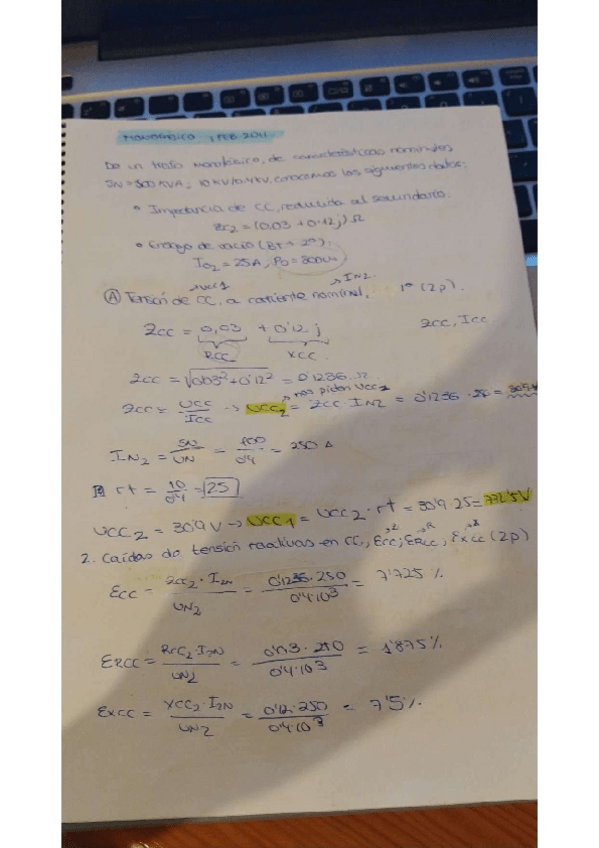 MONOFÁSICO (FEB 2021)
De un trafo monofásico, de características nominales
SN = 100 KVA; 10KV/0.4KV, conocemos los siguientes datos:
• Impedancia de CC, reducida al secundario:
Zcc2 = (0,03 + 0.12j) Ω
• Ensayo de vacío (BT → 2º):
IO2 = 25A, PO = 800W
→ UCC1 → IN2
A Tensión de CC, a corriente nominal, 1º (2p).
Zcc = 0,03 + 0'12 j Zcc, Icc
RCC XCC
Zcc = √0.03² + 0'12² = 0'1236 Ω
→ nos piden Ucc1
Zcc = UCC/ICC → UCC2 = Zcc · IN2 = 0'1236 · 250 = 30'9
IN2 = SN/UN = 100/0'4 = 250 A
rt = 10/0'4 = 25
UCC2 = 30'9 V → UCC1 = UCC2 · rt = 30'9 · 25 = 772'5 V
→Z →R →X
2. Caídas de tensión reactivas en CC, Ecc, ERCC, EXCC (2p)
Ecc = Zcc2 · I2N / UN2 = 0'1236 · 250 / 0'4·10³ = 7'725 %
ERCC = RCC2 · I2N / UN2 = 0'03 · 250 / 0'4·10³ = 1'875 %
EXCC = XCC2 · I2N / UN2 = 0'12 · 250 / 0'4·10³ = 7'5 %